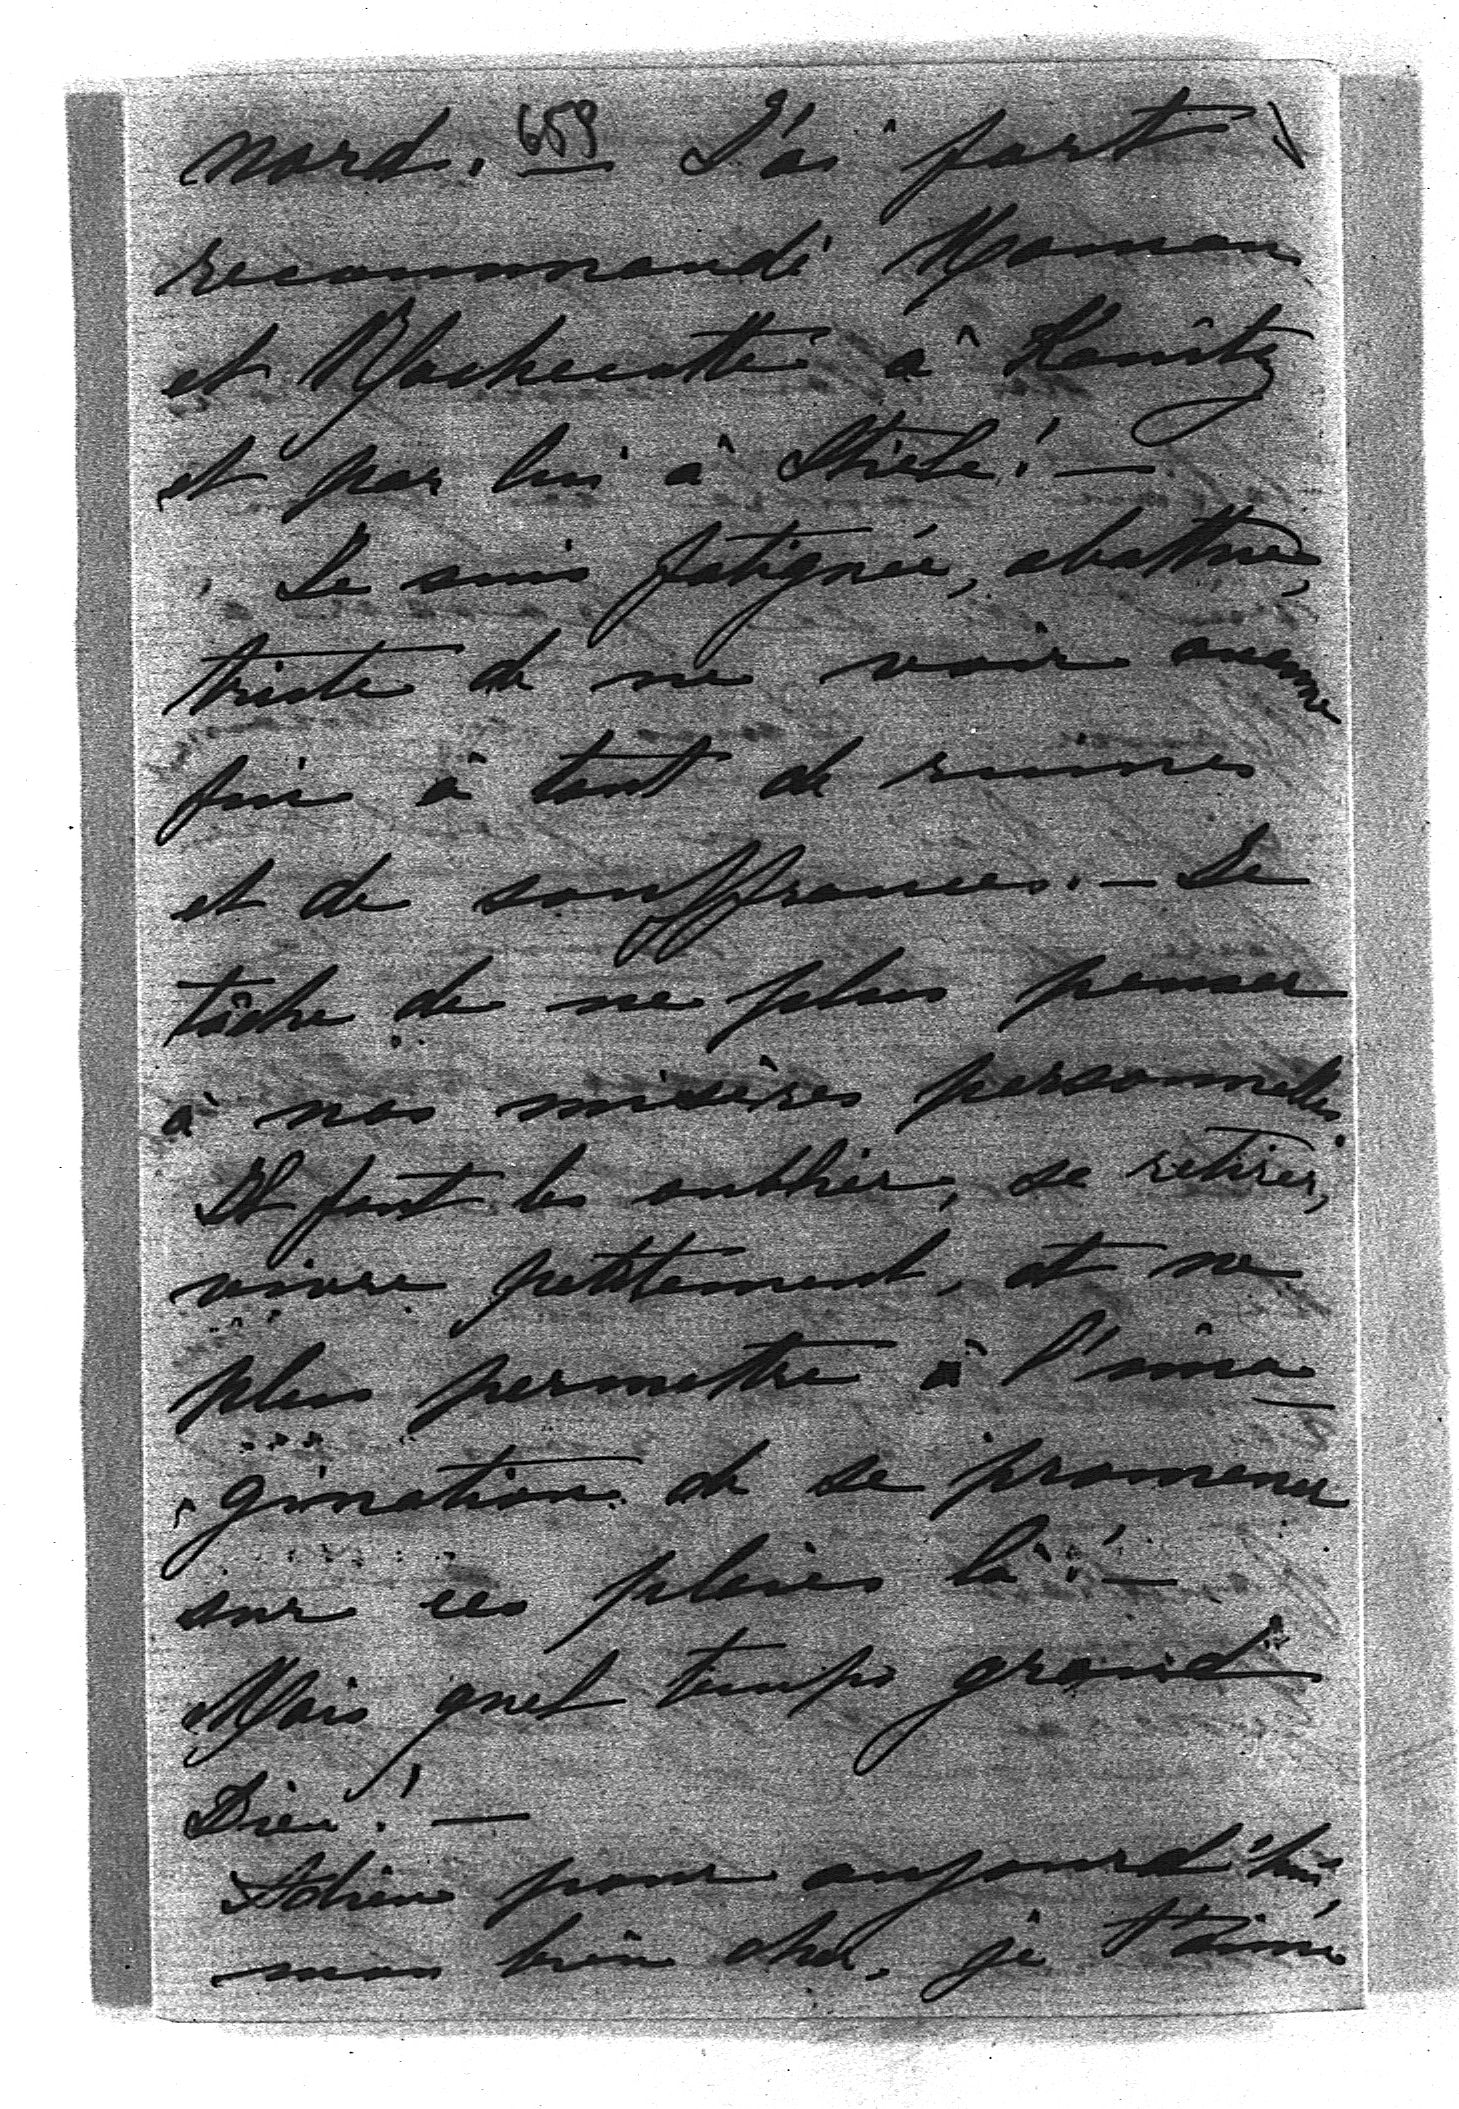 nord. — 659 J'ai fort
recommandé Maman
et Rochecotte à Kanitz
et par lui à Stiehle! —
Je suis fatiguée, abattue,
triste de ne voir aucune
fin à tant de ruines
et de souffrances. — Je
tâche de ne plus penser
à nos misères personnelles.
Il faut les oublier, se retirer,
vivre petitement, et ne
plus permettre à l'ima-
gination de se promener
sur ces plaies là! —
Mais quel temps grand
Dieu! —
Adieu pour aujourd'hui,
mon bien cher, je t'aime